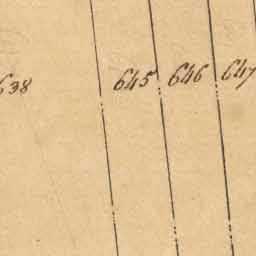 638 645 646 647